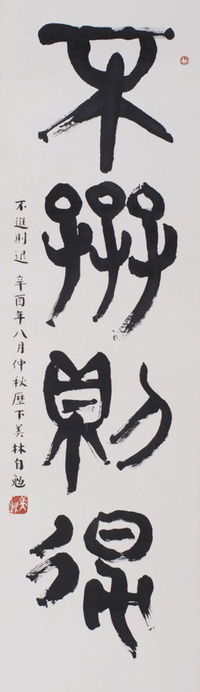 不進則退
不進則退 辛酉年八月仲秋歷下美林自勉